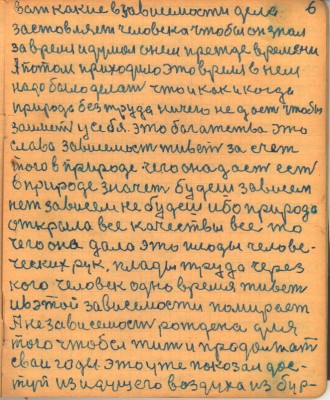 6
вот какие в зависимости дела
заставляет человека чтобы он знал
за время и думал о нем прежде времени
А потом приходило это время в нем
надо было делать что и как и когда
природа без труда ничего не дает чтобы
у себя. это богатства это
слава зависимост живет за счет
того в природе чего она дает есть
в природе значет будеш зависем
нет зависем не будеш ибо природа
открыла все качествы все то
чего она дала это плоды челове-
ческих рук. плады труда через
кого человек одно время живет
и в этой зависемости помирает
А независемост рождена для
того чтобы жит и продолжат
сваи годы это уже показал дос-
туп из идущего воздуха из бур-